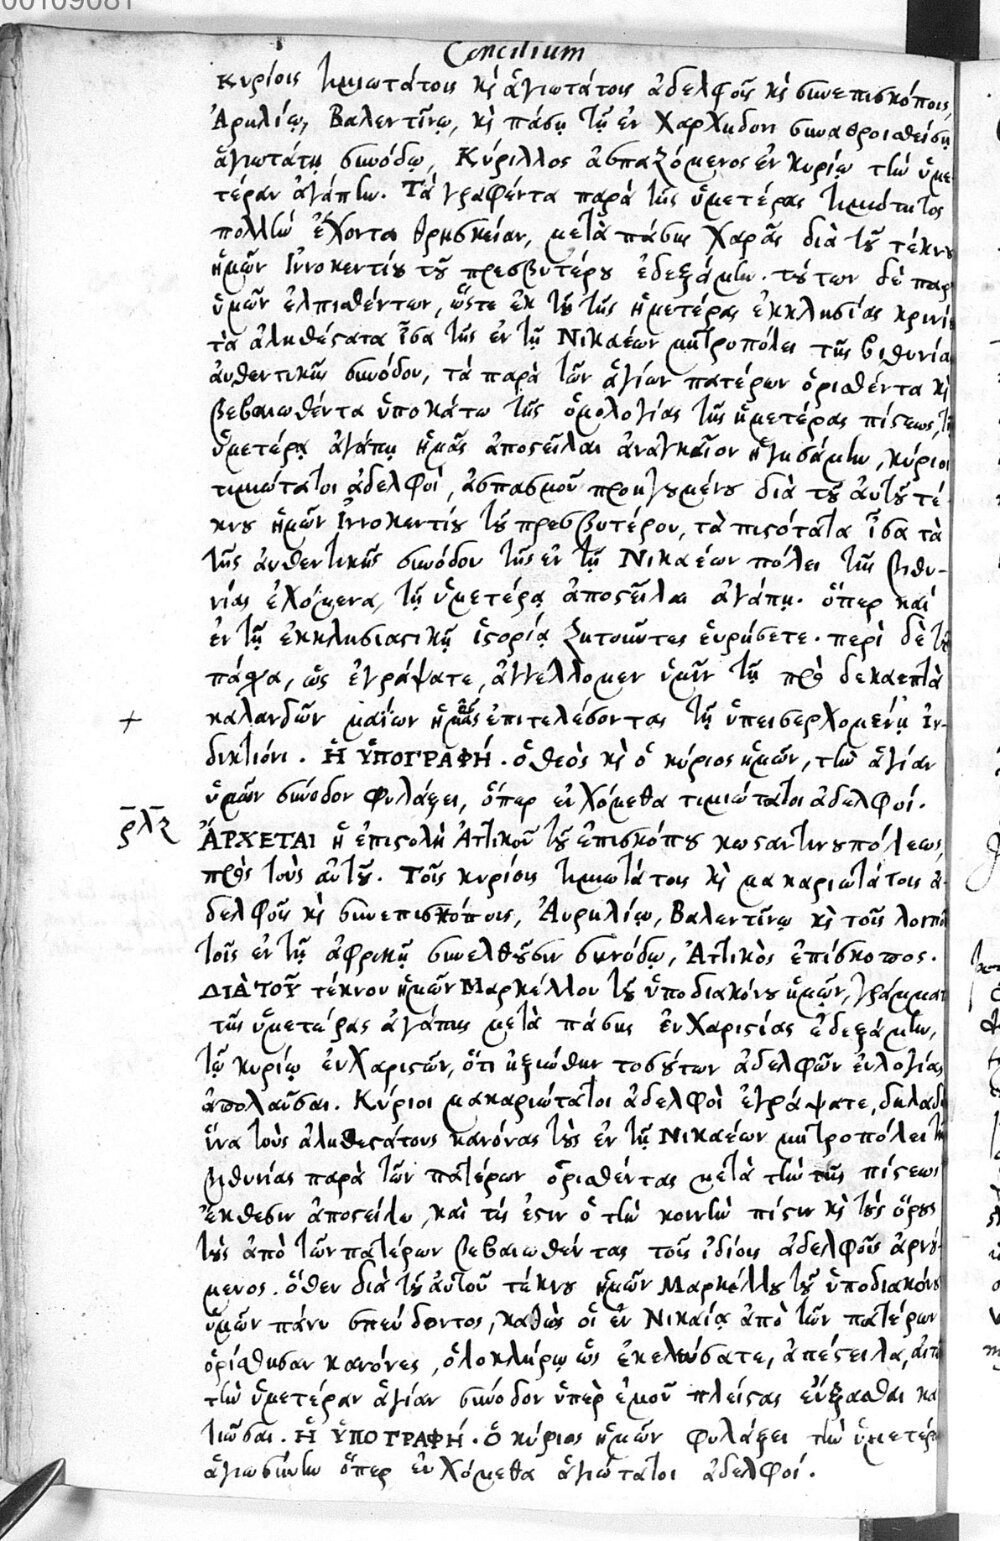 00109081
Concilium
κυρίοις τιμιωτάτοις κ̀ ἁγιωτάτοις ἀδελφοῖς κ̀ συνεπισκόποις,
Ἀρηλίῳ, Βαλεντίνῳ, κ̀ πάσῃ τῇ ἐν Χαρχηδόνι συναθροισθείσῃ
ἁγιωτάτῃ συνόδῳ, Κύριλλος ἀσπαζόμενος ἐν κυρίῳ τὴν ὑμε
τέραν ἀγάπην. Τὰ γραφέντα παρὰ τῆς ὑμετέρας τιμιότητος
πολλὴν ἔχοντα θρησκείαν, μετὰ πάσης χαρᾶς διὰ τοῦ τέκνου
ἡμῶν Ἰννοκεντίου τοῦ πρεσβυτέρου ἐδεξάμην. τούτων δὲ παρ
ὑμῶν ἐλπισθέντων, ὥστε ἐκ τοῦ τῆς ἡμετέρας ἐκκλησίας κρινί
τὰ ἀληθέστατα ἶσα τῆς ἐν τῇ Νικαέων μητροπόλει τῆς βιθυνία
αὐθεντικῆς συνόδου, τὰ παρὰ τῶν ἁγίων πατέρων ὁρισθέντα κ̀
βεβαιωθέντα ὑποκάτω τῆς ὁμολογίας τῆς ἡμετέρας πίστεως, τῇ
ὑμετέρᾳ ἀγάπῃ ἡμᾶς ἀποστεῖλαι ἀναγκαῖον ἡγησάμην, κύριοι
τιμιώτατοι ἀδελφοί, ἀσπασμοῦ προηγουμένου διὰ τοῦ αὐτοῦ τέ
κνου ἡμῶν Ἰννοκεντίου τοῦ πρεσβυτέρου, τὰ πιστότατα ἶσα τὰ
τῆς αὐθεντικῆς συνόδου τῆς ἐν τῇ Νικαέων πόλει τῆς βιθυ-
νίας ἐχόμενα, τῇ ὑμετέρᾳ ἀποστεῖλαι ἀγάπῃ. ὅπερ καὶ
ἐν τῇ ἐκκλησιαστικῇ ἱστορίᾳ ζητοῦντες εὑρήσετε. περὶ δὲ τοῦ
πάσχα, ὡς ἐγράψατε, ἀγγέλλομεν ὑμῖν τῇ πρὸ δεκαεπτὰ
καλανδῶν μαΐων ἡμᾶς ἐπιτελέσοντας τῇ ὑπεισερχομένῃ ἰν-
δικτιόνι. Ἡ ὙΠΟΓΡΑΦΉ. ὁ θεὸς κ̀ ὁ κύριος ἡμῶν, τὴν ἁγίαν
ὑμῶν σύνοδον φυλάξει, ὅπερ εὐχόμεθα τιμιώτατοι ἀδελφοί.
ρλζ
ἌΡΧΕΤΑΙ ἡ ἐπιστολὴ Ἀττικοῦ τοῦ ἐπισκόπου κωνσταντινουπόλεως,
πρὸς τοὺς αὐτοῦ. Τοῖς κυρίοις τιμιωτάτοις κ̀ μακαριωτάτοις ἀ-
δελφοῖς κ̀ συνεπισκόποις, Αὐρηλίῳ, Βαλεντίνῳ κ̀ τοῖς λοιποῖ
τοῖς ἐν τῇ ἀφρικῇ συνελθοῦσιν συνόδῳ, Ἀττικὸς ἐπίσκοπος.
ΔΙᾺ ΤΟΥ͂ τέκνου ἡμῶν Μαρκέλλου τοῦ ὑποδιακόνου ἡμῶν, γράμματ
τῆς ὑμετέρας ἀγάπης μετὰ πάσης εὐχαριστίας ἐδεξάμην,
τῷ κυρίῳ εὐχαριστῶν, ὅτι ἠξιώθην τοσούτων ἀδελφῶν εὐλογίας
ἀπολαῦσαι. Κύριοι μακαριώτατοι ἀδελφοὶ ἐγράψατε, δηλαδὴ
ἵνα τοὺς ἀληθεστάτους κανόνας τοὺς ἐν τῇ Νικαέων μητροπόλει τῆ
βιθυνίας παρὰ τῶν πατέρων ὁρισθέντας μετὰ τὴν τῆς πίστεως
ἔκθεσιν ἀποστείλω, καὶ τίς ἐστιν ὁ τὴν κοινὴν πίστιν κ̀ τοὺς ὅρους
τοὺς ἀπὸ τῶν πατέρων βεβαιωθέντας τοῖς ἰδίοις ἀδελφοῖς ἀρνού-
μενος. ὅθεν διὰ τοῦ αὐτοῦ τέκνου ἡμῶν Μαρκέλλου τοῦ ὑποδιακόνου
ὑμῶν πάνυ σπεύδοντος, καθὼς οἱ ἐν Νικαίᾳ ἀπὸ τῶν πατέρων
ὁρίσθησαν κανόνες, ὁλοκλήρῳ ὡς ἐκελεύσατε, ἀπέστειλα, αἰτῶ
τὴν ὑμετέραν ἁγίαν σύνοδον ὑπὲρ ἐμοῦ πλείστας εὔξασθαι κα
τιῶσαι. Ἡ ὙΠΟΓΡΑΦΉ. Ὁ κύριος ἡμῶν φυλάξει τὴν ὑμετέρα
ἁγιωσύνην ὅπερ εὐχόμεθα ἁγιώτατοι ἀδελφοί.